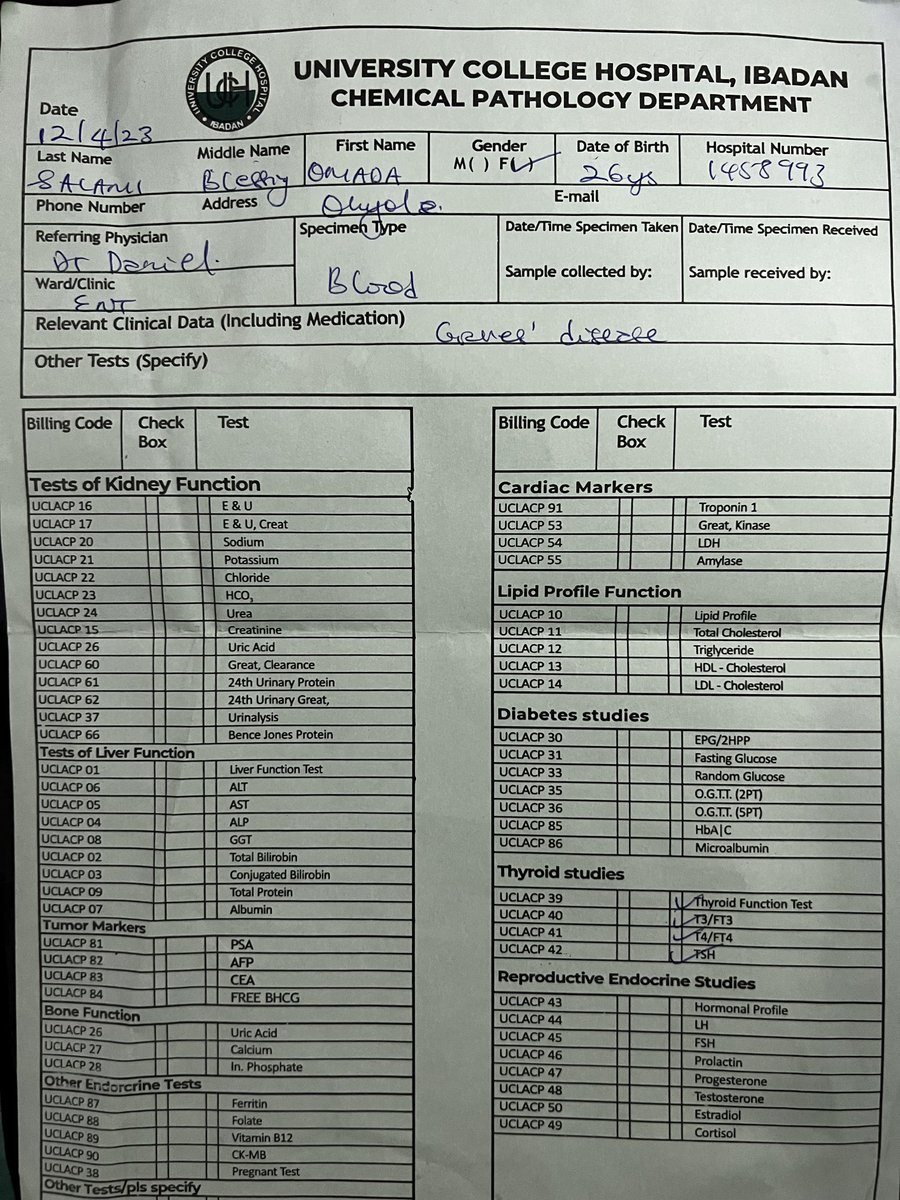 UNIVERSITY COLLEGE HOSPITAL, IBADAN
CHEMICAL PATHOLOGY DEPARTMENT
UNIVERSITY COLLEGE HOSPITAL
UCH
IBADAN
Date
12/4/23
Last Name Middle Name First Name Gender Date of Birth Hospital Number
SALAMI Blessing M( ) F( ) 26ys 1458993
Phone Number Address E-mail
Oluyole.
Referring Physician Specimen Type Date/Time Specimen Taken Date/Time Specimen Received
Dr Daniel.
Ward/Clinic Blood Sample collected by: Sample received by:
ENT
Relevant Clinical Data (Including Medication) Graves' disease
Other Tests (Specify)
Billing Code Check Box Test
Tests of Kidney Function
UCLACP 16 E & U
UCLACP 17 E & U, Creat
UCLACP 20 Sodium
UCLACP 21 Potassium
UCLACP 22 Chloride
UCLACP 23 HCO,
UCLACP 24 Urea
UCLACP 15 Creatinine
UCLACP 26 Uric Acid
UCLACP 60 Great, Clearance
UCLACP 61 24th Urinary Protein
UCLACP 62 24th Urinary Great,
UCLACP 37 Urinalysis
UCLACP 66 Bence Jones Protein
Tests of Liver Function
UCLACP 01 Liver Function Test
UCLACP 06 ALT
UCLACP 05 AST
UCLACP 04 ALP
UCLACP 08 GGT
UCLACP 02 Total Bilirobin
UCLACP 03 Conjugated Bilirobin
UCLACP 09 Total Protein
UCLACP 07 Albumin
Tumor Markers
UCLACP 81 PSA
UCLACP 82 AFP
UCLACP 83 CEA
UCLACP 84 FREE BHCG
Bone Function
UCLACP 26 Uric Acid
UCLACP 27 Calcium
UCLACP 28 In. Phosphate
Other Endorcrine Tests
UCLACP 87 Ferritin
UCLACP 88 Folate
UCLACP 89 Vitamin B12
UCLACP 90 CK-MB
UCLACP 38 Pregnant Test
Other Tests/pls specify
Billing Code Check Box Test
Cardiac Markers
UCLACP 91 Troponin 1
UCLACP 53 Great, Kinase
UCLACP 54 LDH
UCLACP 55 Amylase
Lipid Profile Function
UCLACP 10 Lipid Profile
UCLACP 11 Total Cholesterol
UCLACP 12 Triglyceride
UCLACP 13 HDL - Cholesterol
UCLACP 14 LDL - Cholesterol
Diabetes studies
UCLACP 30 EPG/2HPP
UCLACP 31 Fasting Glucose
UCLACP 33 Random Glucose
UCLACP 35 O.G.T.T. (2PT)
UCLACP 36 O.G.T.T. (5PT)
UCLACP 85 HbA|C
UCLACP 86 Microalbumin
Thyroid studies
UCLACP 39 Thyroid Function Test
UCLACP 40 T3/FT3
UCLACP 41 T4/FT4
UCLACP 42 TSH
Reproductive Endocrine Studies
UCLACP 43 Hormonal Profile
UCLACP 44 LH
UCLACP 45 FSH
UCLACP 46 Prolactin
UCLACP 47 Progesterone
UCLACP 48 Testosterone
UCLACP 50 Estradiol
UCLACP 49 Cortisol